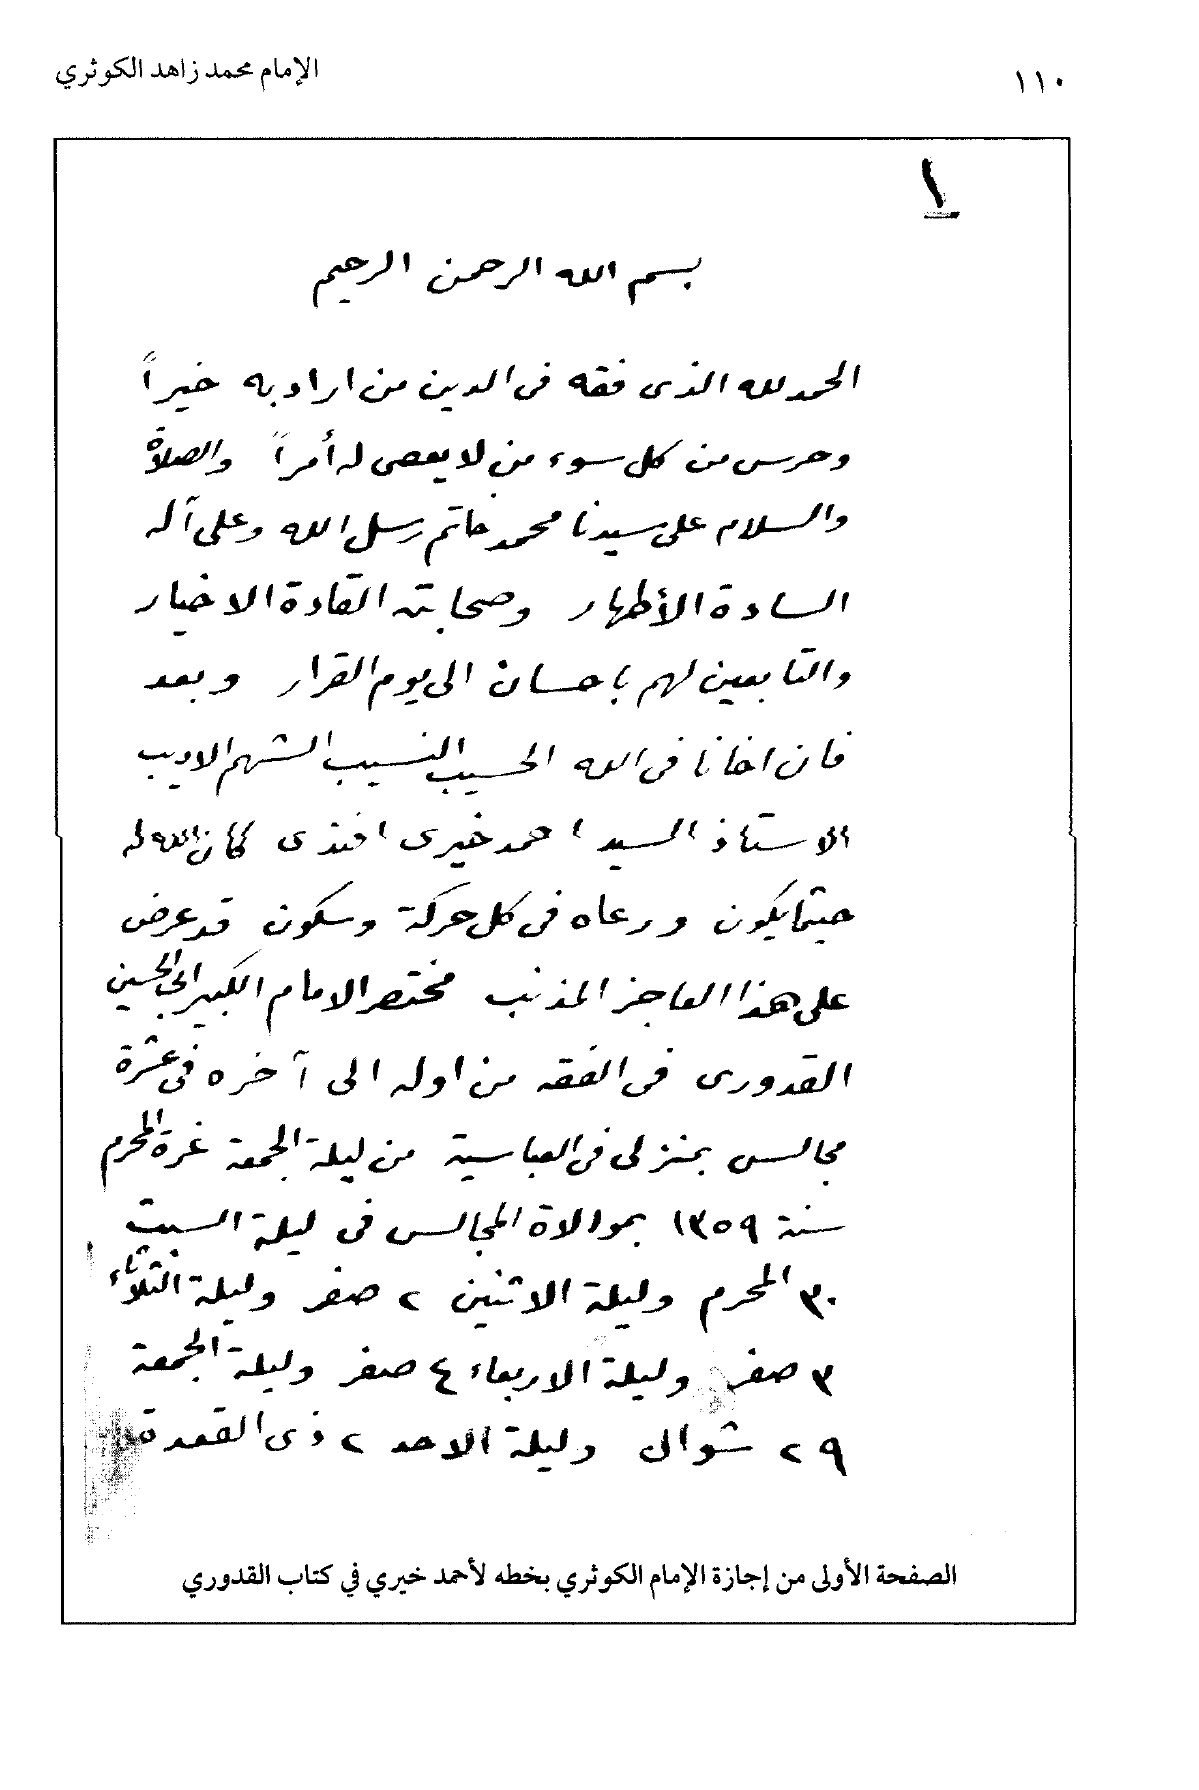 ١١٠
الإمام محمد زاهد الكوثري
١
بسم الله الرحمن الرحيم
الحمد لله الذى فقه فى الدين من اراد به خيراً
وحرس من كل سوء من لا يعصى له أمراً والصلاة
والسلام على سيدنا محمد خاتم رسل الله وعلى آله
السادة الأطهار وصحابته القادة الاخيار
والتابعين لهم باحسان الى يوم القرار وبعد
فان اخانا فى الله الحسيب النسيب الشهم الاديب
الاستاذ السيد احمد خيرى افندى كان الله له
حيثما يكون ورعاه فى كل حركة وسكون قد عرض
على هذا العاجز المذنب مختصر الامام الكبير ابى الحسين
القدورى فى الفقه من اوله الى آخره فى عشرة
مجالس بمنزلى فى العباسية من ليلة الجمعة غرة المحرم
سنة ١٣٥٩ بموالاة المجالس فى ليلة السبت
٣٠ المحرم وليلة الاثنين ٢ صفر وليلة الثلاثاء
٣ صفر وليلة الاربعاء ٤ صفر وليلة الجمعة
٢٩ شوال وليلة الاحد ٢ ذى القعدة
الصفحة الأولى من إجازة الإمام الكوثري بخطه لأحمد خيري في كتاب القدوري